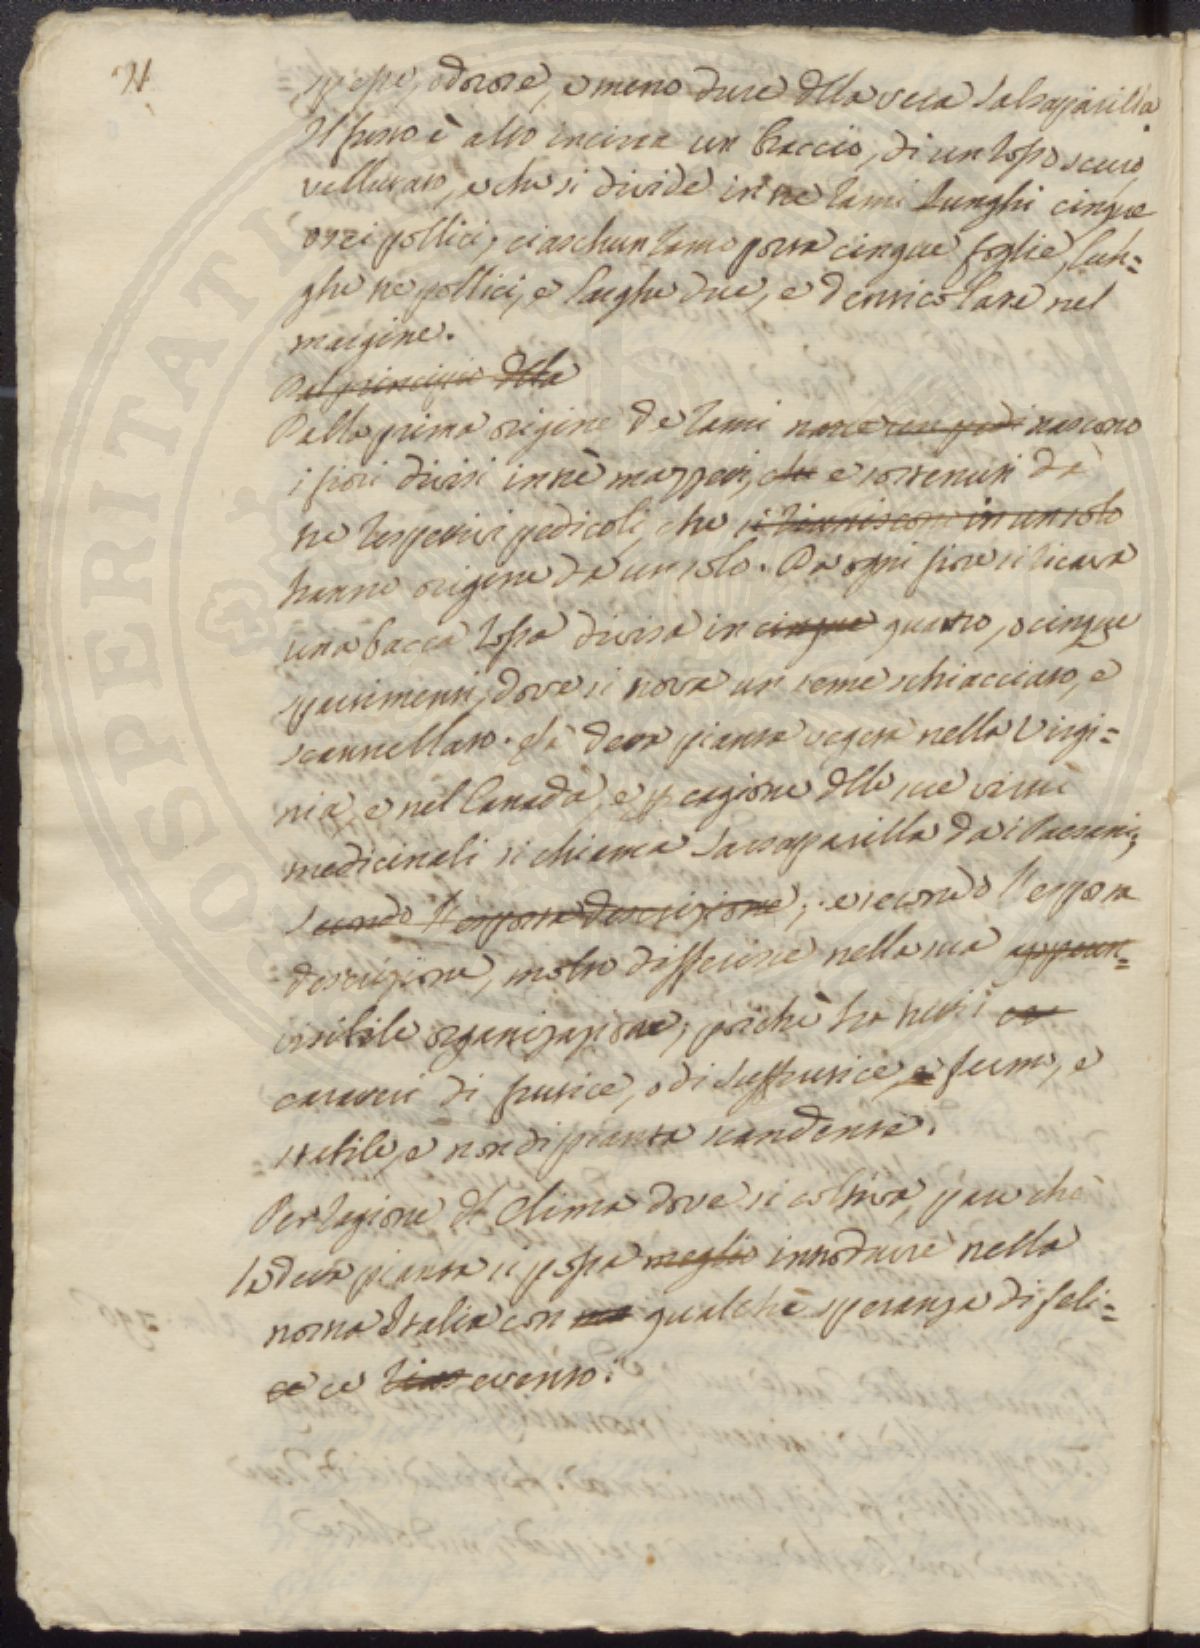 71
spesse, odorose, e meno dure della vera Salsapariglia.
Il fusto è alto incirca un braccio, di un rosso scuro
vellutato, e che si divide in tre rami lunghi cinque
o sei pollici; ciaschun ramo porta cinque foglie, lun=
ghe tre pollici, e larghe due, e denticolate nel
margine.
Dal principio della
Dalla prima origine de rami nascono
i fiori divisi in tre mazzetti, che e sostenuti da
tre respettivi pedicoli, che si riuniscono in un solo
hanno origine da un solo. Da ogni fiore si ricava
una bacca rossa divisa in cinque quattro, o cinque
spartimenti, dove si trova un seme schiacciato, e
scannellato. La detta pianta vegeta nella Virgi=
nia, e nel Canadà, e p cagione delle sue virtù
medicinali si chiama Salsapariglia da i Paesani;
secondo l'esposta descrizione; e secondo l'esposta
descrizione, molto differisce nella sua
visibile organizazione; poichè ha tutti
caratteri di frutice, o di suffrutice, e fermo, e
stabile, e non di pianta scandente.
Per ragione del Clima dove si coltiva, pare che
la detta pianta si possa meglio introdurre nella
nostra Italia con qualche speranza di feli=
ce evento.